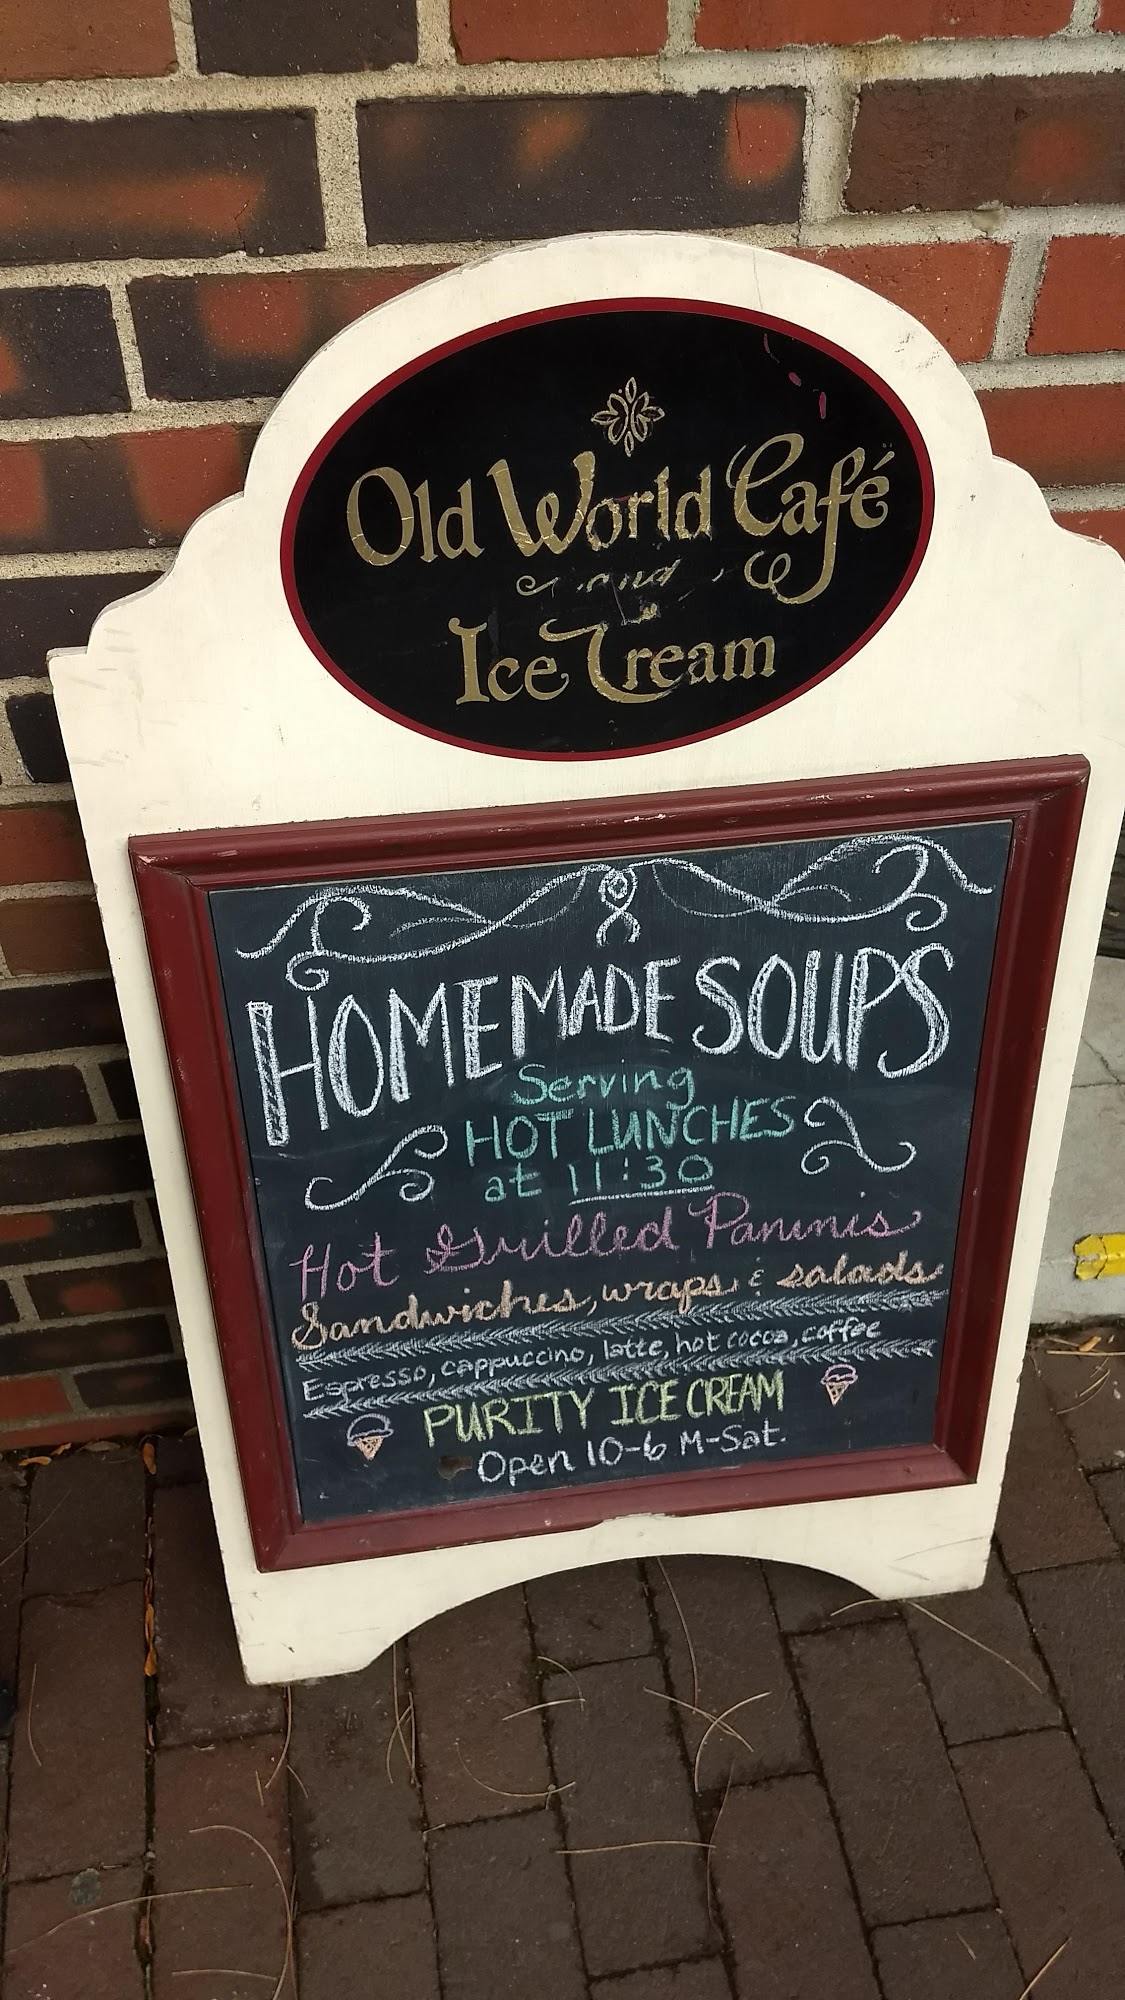 Old World Café
and
Ice Cream
HOMEMADE SOUPS
Serving
HOT LUNCHES
at 11:30
Hot Grilled Paninis
Sandwiches, wraps & salads
Espresso, cappuccino, latte, hot cocoa, coffee
PURITY ICE CREAM
Open 10-6 M-Sat.